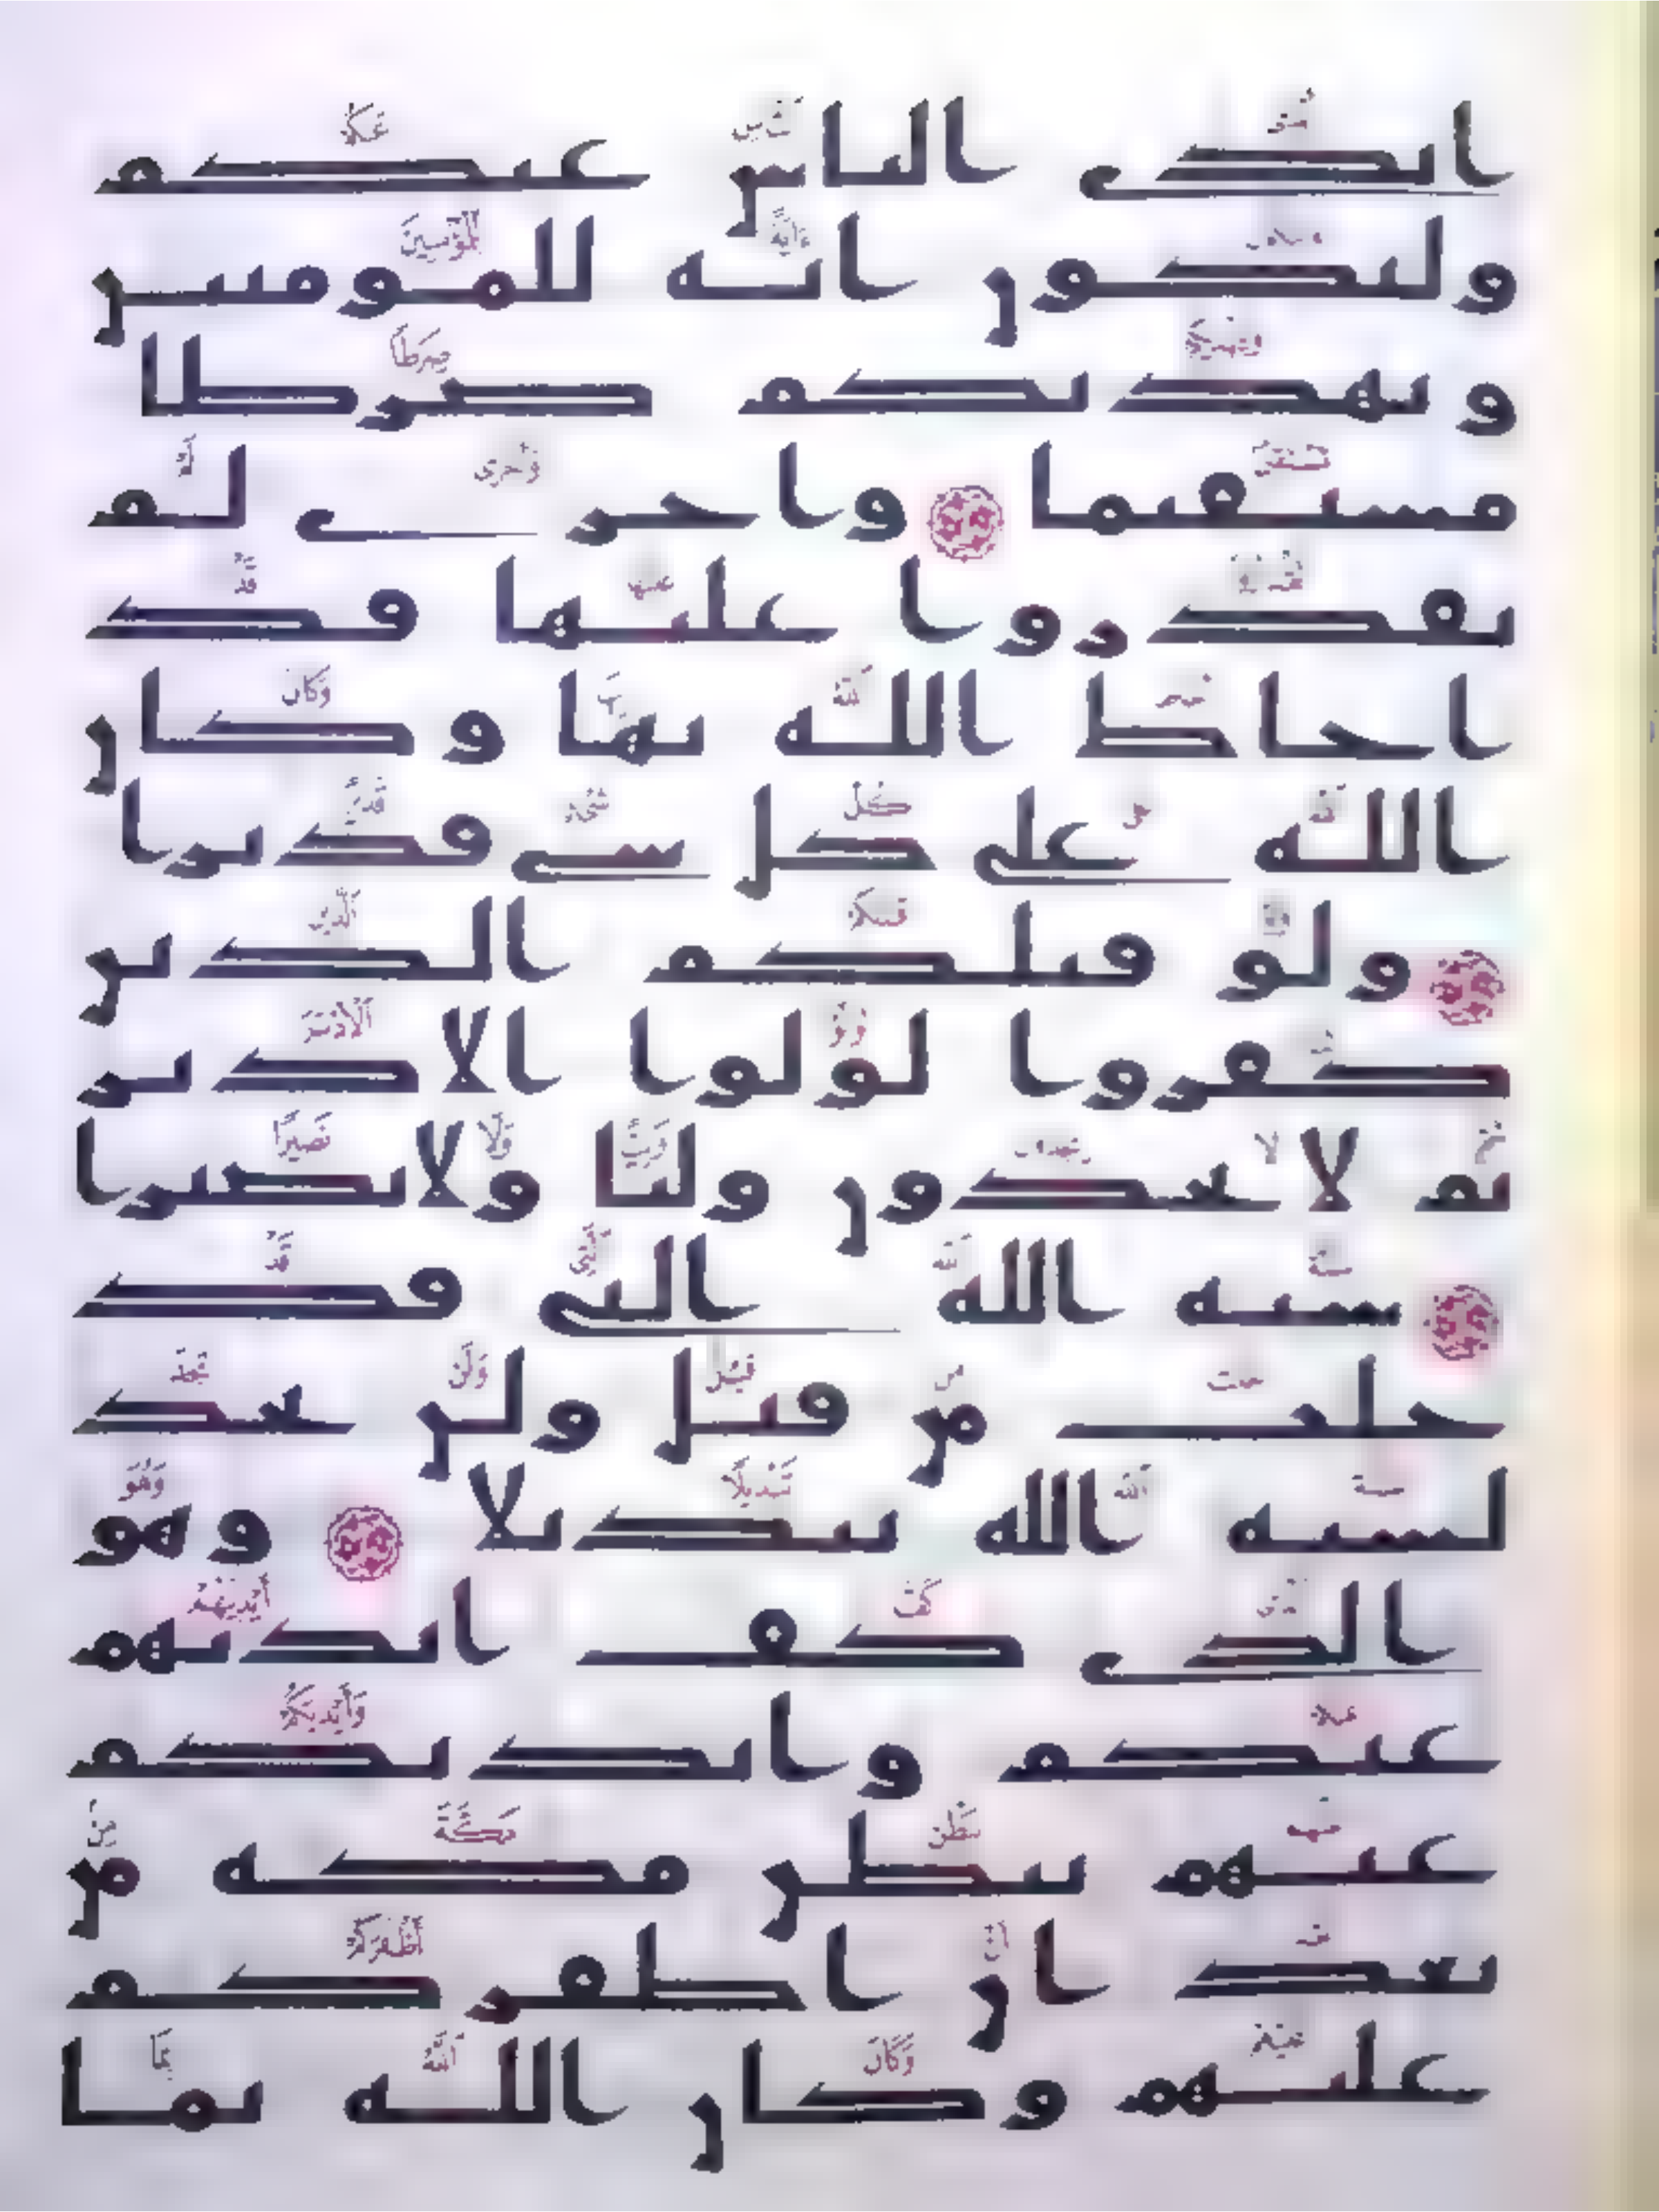 ايدى الناس عنكم
ولتكون ايه للمومنين
ويهديكم صرطا
مستقيما واخرى لم
تقدروا عليها قد
احاط الله بها وكان
الله على كل شى قديرا
ولو قتلكم الذين
كفروا لولوا الادبر
ثم لا يجدون وليا ولا نصيرا
سنه الله التى قد
خلت من قبل ولن تجد
لسنه الله تبديلا وهو
الذى كف ايديهم
عنكم وايديكم
عنهم ببطن مكه من
بعد ان اظفركم
عليهم وكان الله بما